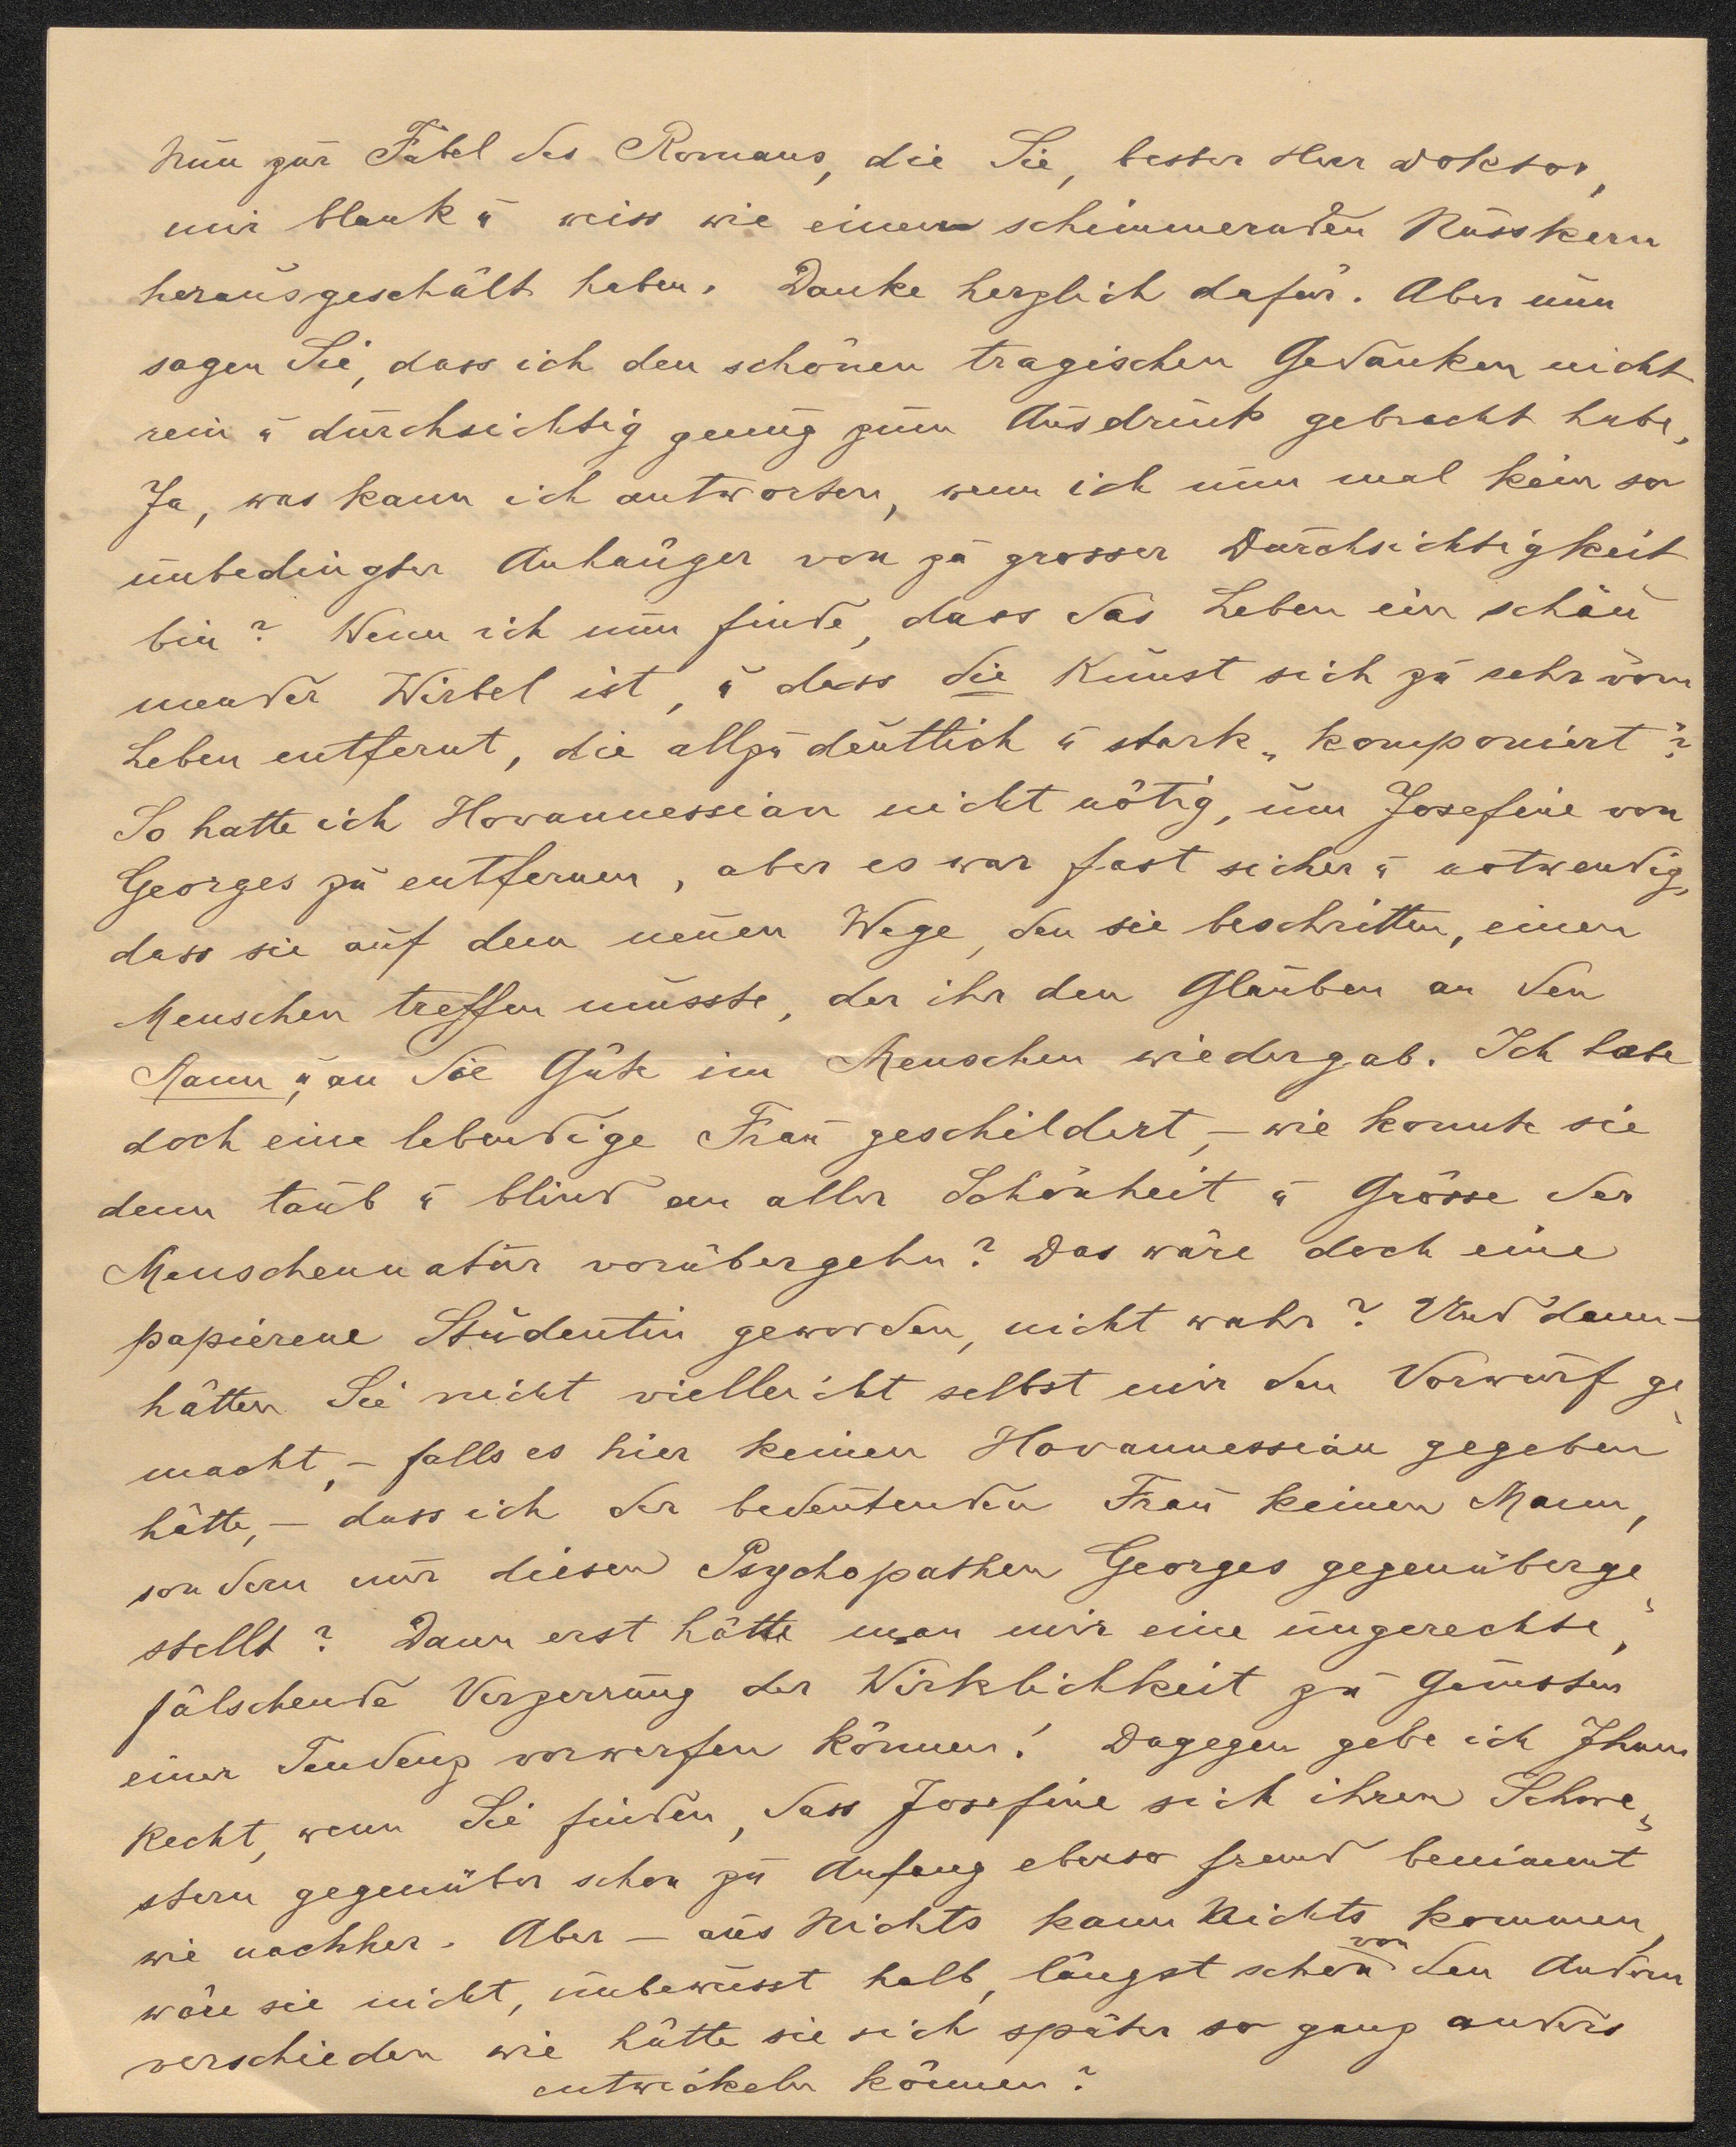 Nun zur Fabel des Romans, die Sie, bester Herr Doktor,
mir blank u weiss wie einen schimmernden Nusskern
herausgeschält haben. Danke herzlich dafür. Aber nun
sagen Sie, dass ich den schönen tragischen Gedanken nicht
rein u durchsichtig genug zum Ausdruck gebracht habe,
Ja, was kann ich antworten, wenn ich nun mal kein so
unbedingter Anhänger von zu grosser Durchsichtigkeit
bin? Wenn ich nun finde, dass das Leben ein schäu
mender Wirbel ist, u dass die Kunst sich zu sehr vom
Leben entfernt, die allzu deutlich u stark „komponiert"?
So hatte ich Hovannessian nicht nötig, um Josefine von
Georges zu entfernen, aber es war fast sicher u notwendig,
dass sie auf dem neuen Wege, den sie beschritten, einen
Menschen treffen musste, der ihr den Glauben an den
Mann, u an die Güte im Menschen wiedergab. Ich habe
doch eine lebendige Frau geschildert, – wie konnte sie
denn taub u blind an aller Schönheit u Grösse der
Menschennatur vorübergehn? Das wäre doch eine
papierene Studentin geworden, nicht wahr? Und dann –
hätten Sie nicht vielleicht selbst mir den Vorwurf ge-
macht, – falls es hier keinen Hovannessian gegeben
hätte, – dass ich der bedeutenden Frau keinen Mann,
sondern nur diesen Psychopathen Georges gegenüberge-
stellt? Dann erst hätte man mir eine ungerechte,
fälschende Verzerrung der Wirklichkeit zu Gunsten
einer Tendenz vorwerfen können! Dagegen gebe ich Ihnen
Recht, wenn Sie finden, dass Josefine sich ihren Schwe-
stern gegenüber schon zu Anfang ebenso fremd benimmt
wie nachher. Aber – aus Nichts kann Nichts kommen,
wäre sie nicht, unbewusst halb, längst schon von den Andern
verschieden wie hätte sie sich später so ganz anders
entwickeln können?